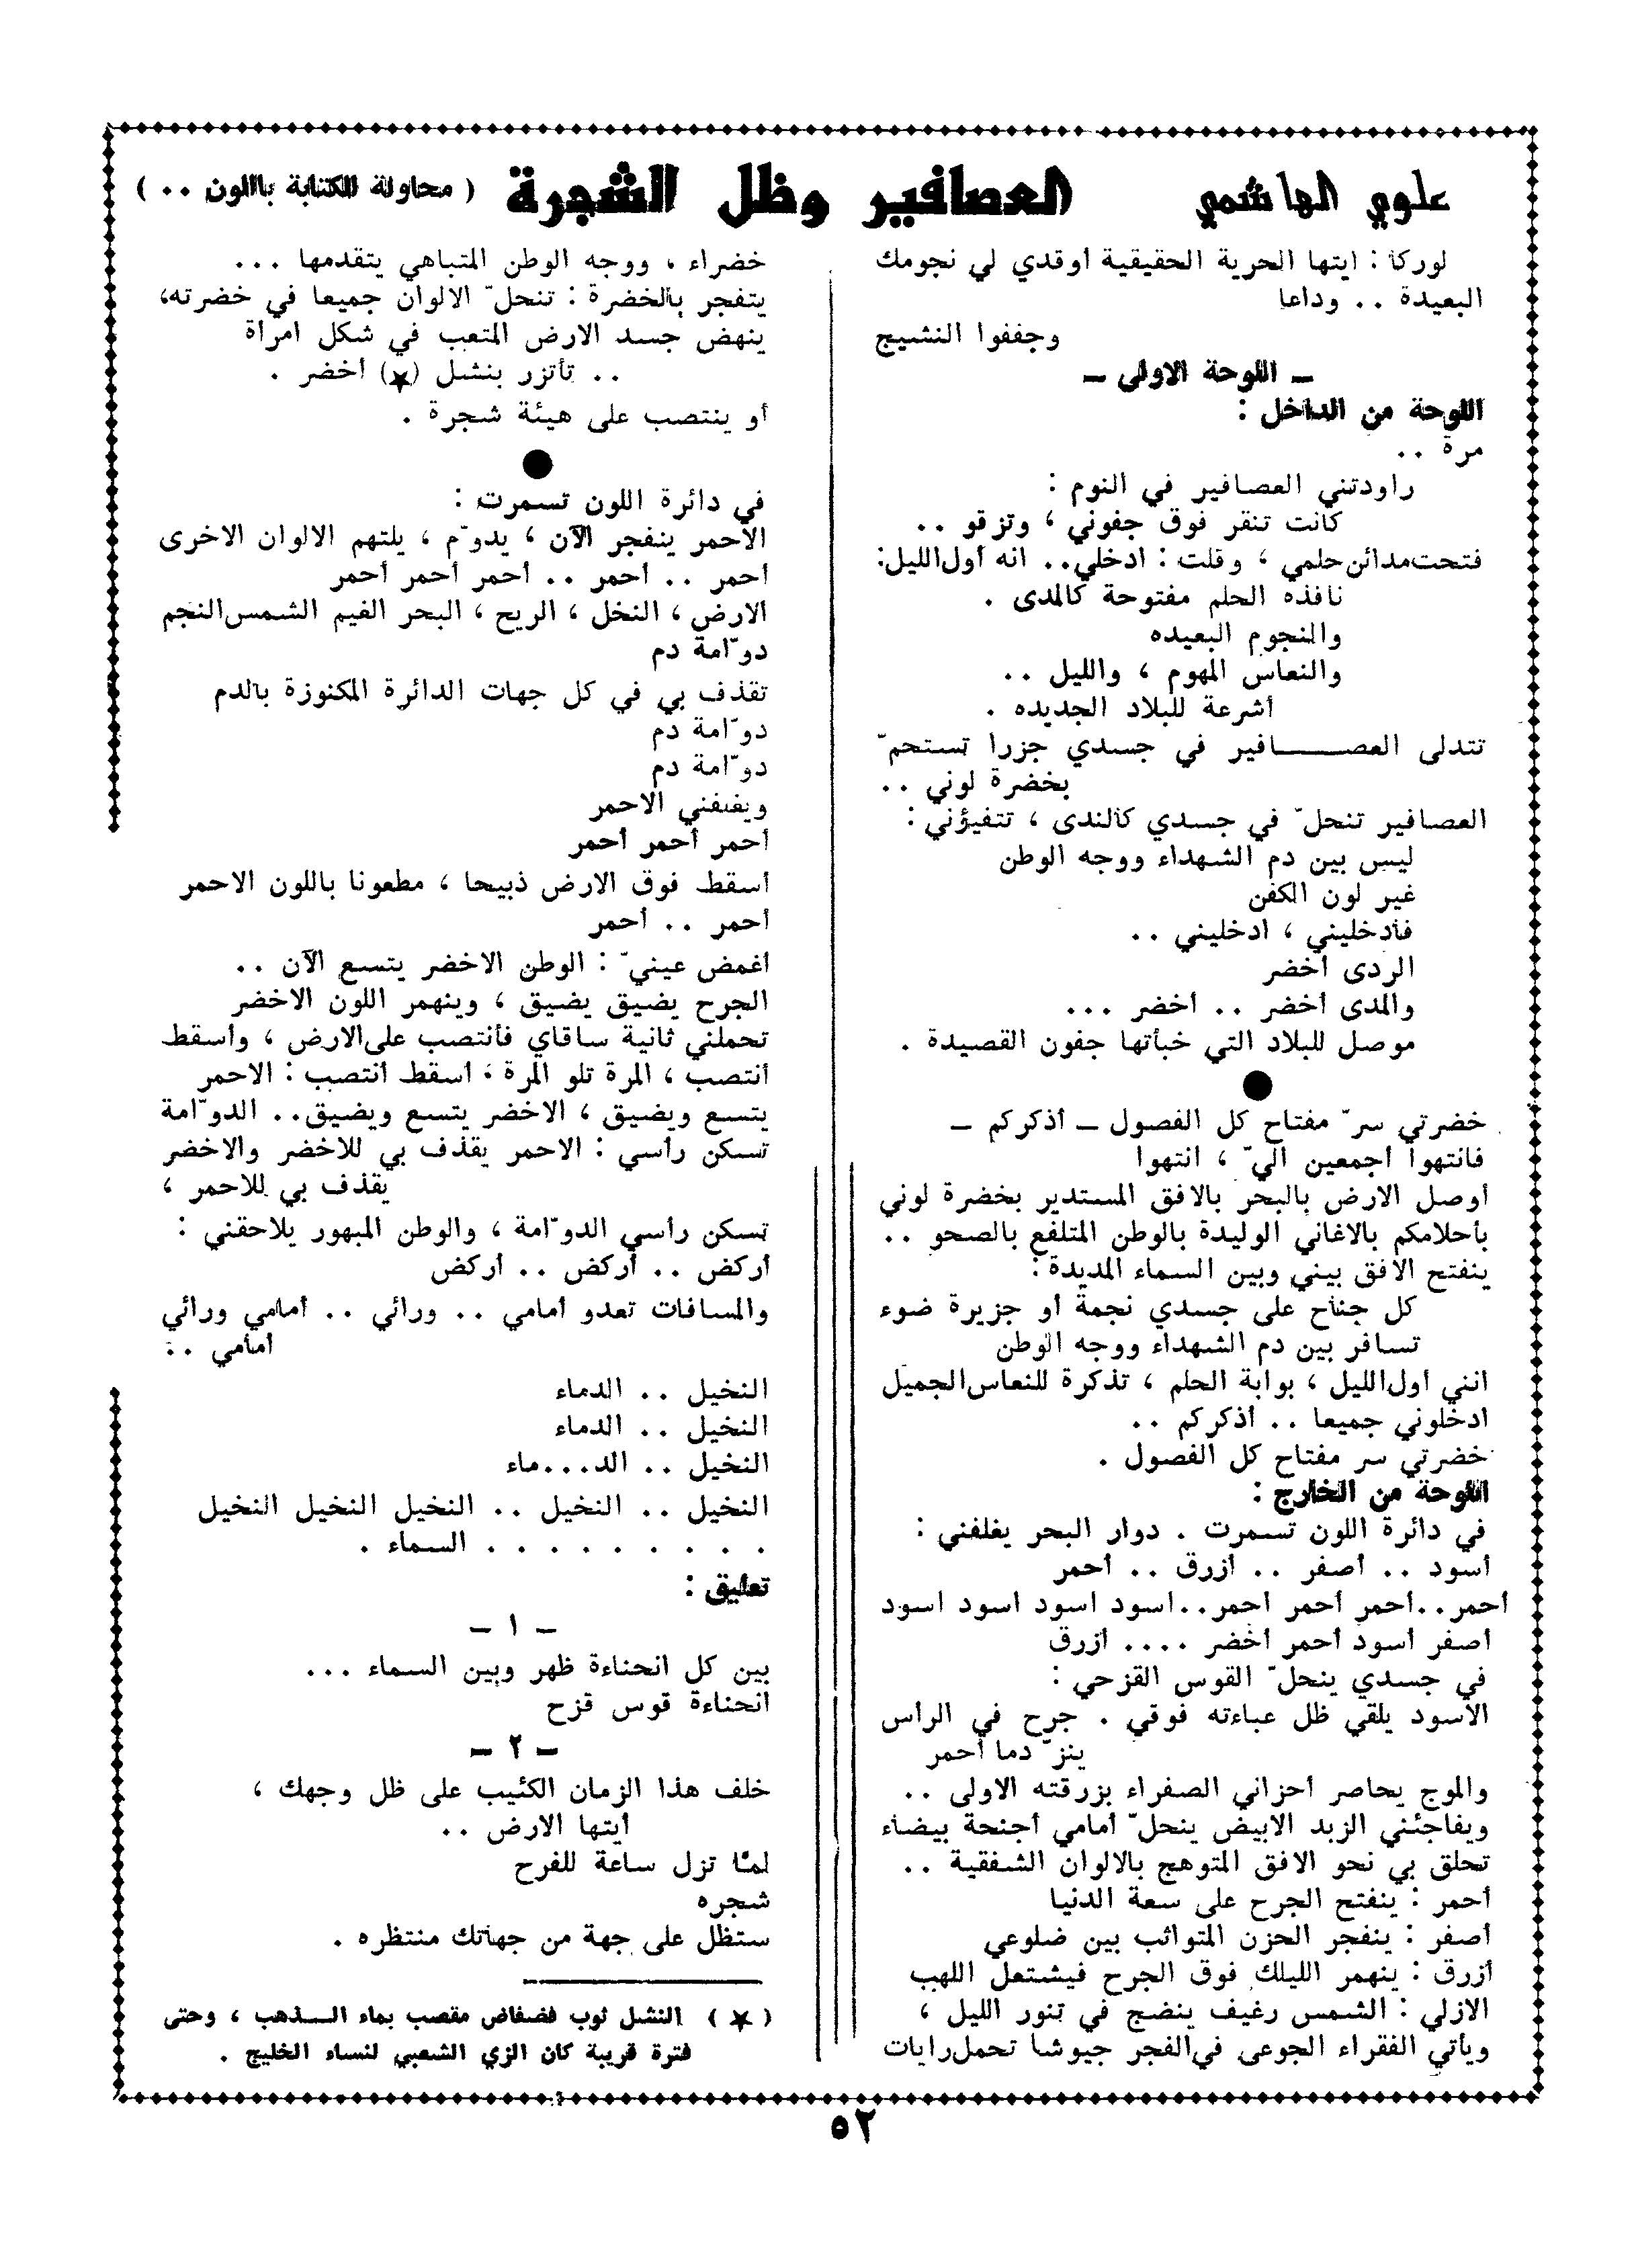 علوي الهاشمي
العصافير وظل الشجرة
( محاولة للكتابة باللون .. )
لوركا : ايتها الحرية الحقيقية أوقدي لي نجومك
البعيدة .. وداعا
وجففوا النشيج
ـ اللوحة الاولى ـ
اللوحة من الداخل :
مرة ..
راودتني العصافير في النوم :
كانت تنقر فوق جفوني ، وتزقو ..
فتحت مدائن حلمي ، وقلت : ادخلي.. انه أول الليل :
نافذه الحلم مفتوحة كالمدى .
والنجوم البعيده
والنعاس المهوم ، والليل ..
أشرعة للبلاد الجديده .
تتدلى العصـــافير في جسدي جزرا تستحمّ
بخضرة لوني ..
العصافير تنحلّ في جسدي كالندى ، تتفيؤني :
ليس بين دم الشهداء ووجه الوطن
غير لون الكفن
فأدخليني ، ادخليني ..
الردى أخضر
والمدى أخضر .. أخضر ...
موصل للبلاد التي خبأتها جفون القصيدة .
خضرتي سرّ مفتاح كل الفصول ـ أذكركم ـ
فانتهوا أجمعين اليّ ، انتهوا
أوصل الارض بالبحر بالافق المستدير بخضرة لوني
بأحلامكم بالاغاني الوليدة بالوطن المتلفع بالصحو ..
ينفتح الافق بيني وبين السماء المديدة :
كل جناح على جسدي نجمة أو جزيرة ضوء
تسافر بين دم الشهداء ووجه الوطن
انني أول الليل ، بوابة الحلم ، تذكرة للنعاس الجميل
ادخلوني جميعا .. أذكركم ..
خضرتي سر مفتاح كل الفصول .
اللوحة من الخارج :
في دائرة اللون تسمرت . دوار البحر يغلفني :
أسود .. أصفر .. أزرق .. أحمر
أحمر..أحمر أحمر أحمر..أسود أسود أسود أسود
أصفر أسود أحمر أخضر .... أزرق
في جسدي ينحلّ القوس القزحي :
الأسود يلقي ظل عباءته فوقي . جرح في الرأس
ينزّ دما أحمر
والموج يحاصر أحزاني الصفراء بزرقته الاولى ..
ويفاجئني الزبد الابيض ينحلّ أمامي أجنحة بيضاء
تحلق بي نحو الافق المتوهج بالالوان الشفقية ..
أحمر : ينفتح الجرح على سعة الدنيا
أصفر : ينفجر الحزن المتوائب بين ضلوعي
أزرق : ينهمر الليلك فوق الجرح فيشتعل اللهب
الازلي : الشمس رغيف ينضج في تنور الليل ،
ويأتي الفقراء الجوعى في الفجر جيوشا تحمل رايات
خضراء ، ووجه الوطن المتباهي يتقدمها ...
يتفجر بالخضرة : تنحلّ الالوان جميعا في خضرته،
ينهض جسد الارض المتعب في شكل امرأة
.. تأتزر بنشل (★) أخضر .
أو ينتصب على هيئة شجرة .
في دائرة اللون تسمرت :
الاحمر ينفجر الآن ، يدوّم ، يلتهم الالوان الاخرى
أحمر .. أحمر .. أحمر أحمر أحمر
الارض ، النخل ، الريح ، البحر الغيم الشمس النجم
دوّامة دم
تقذف بي في كل جهات الدائرة المكنوزة بالدم
دوّامة دم
دوّامة دم
ويغلفني الاحمر
أحمر أحمر أحمر
أسقط فوق الارض ذبيحا ، مطعونا باللون الاحمر
أحمر .. أحمر
أغمض عينيّ : الوطن الاخضر يتسع الآن ..
الجرح يضيق يضيق ، وينهمر اللون الاخضر
تحملني ثانية ساقاي فأنتصب على الارض ، وأسقط
أنتصب ، المرة تلو المرة ، أسقط أنتصب : الاحمر
يتسع ويضيق ، الاخضر يتسع ويضيق.. الدوّامة
تسكن رأسي : الاحمر يقذف بي للاخضر والاخضر
يقذف بي للاحمر ،
تسكن رأسي الدوّامة ، والوطن المبهور يلاحقني :
أركض .. أركض .. أركض
والمسافات تعدو أمامي .. ورائي .. أمامي ورائي
أمامي ..
النخيل .. الدماء
النخيل .. الدماء
النخيل .. الد...ماء
النخيل .. النخيل .. النخيل النخيل النخيل
. . . . . . . . . السماء .
تعليق :
ـ ١ ـ
بين كل انحناءة ظهر وبين السماء ...
انحناءة قوس قزح
ـ ٢ ـ
خلف هذا الزمان الكئيب على ظل وجهك ،
أيتها الارض ..
لمّا تزل ساعة للفرح
شجره
ستظل على جهة من جهاتك منتظره .
( ★ ) النشل ثوب فضفاض مقصب بماء الــذهب ، وحتى
فترة قريبة كان الزي الشعبي لنساء الخليج .
٥٢